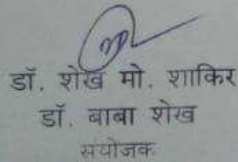 डॉ. शेख मो. शाकिर
डॉ. बाबा शेख
संयोजक